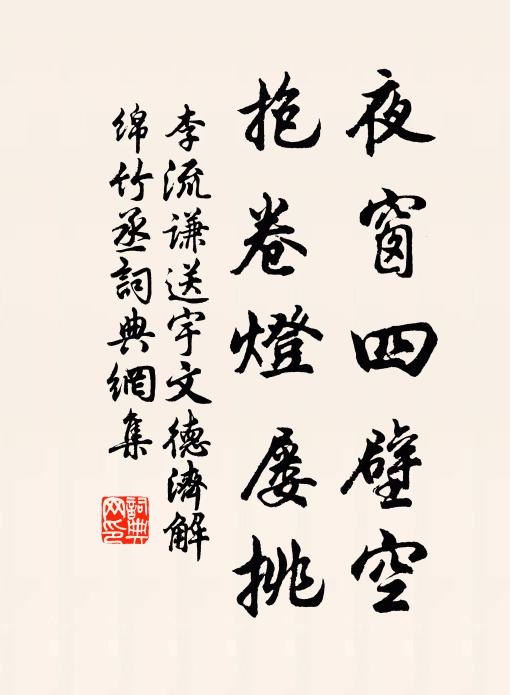 夜窗四壁空
抱卷燈屡挑
李流谦送宇文德濟解
綿竹丞詞典網集
詞典
网印